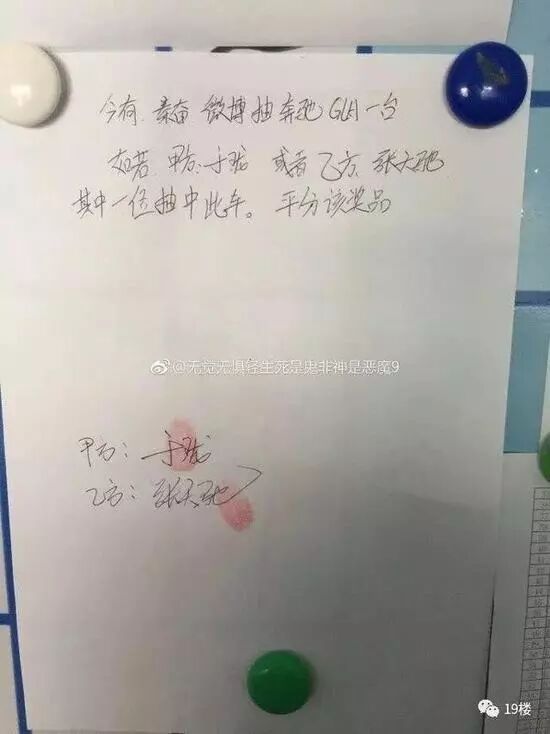 今有 秦奋 微博抽奔驰GLA一台
如若 甲方:于珑 或者乙方 张天驰
其中一位抽中此车。平分该奖品
@无觉无惧轻生死是鬼非神是恶魔9
甲方: 于珑
乙方: 张天驰
19楼